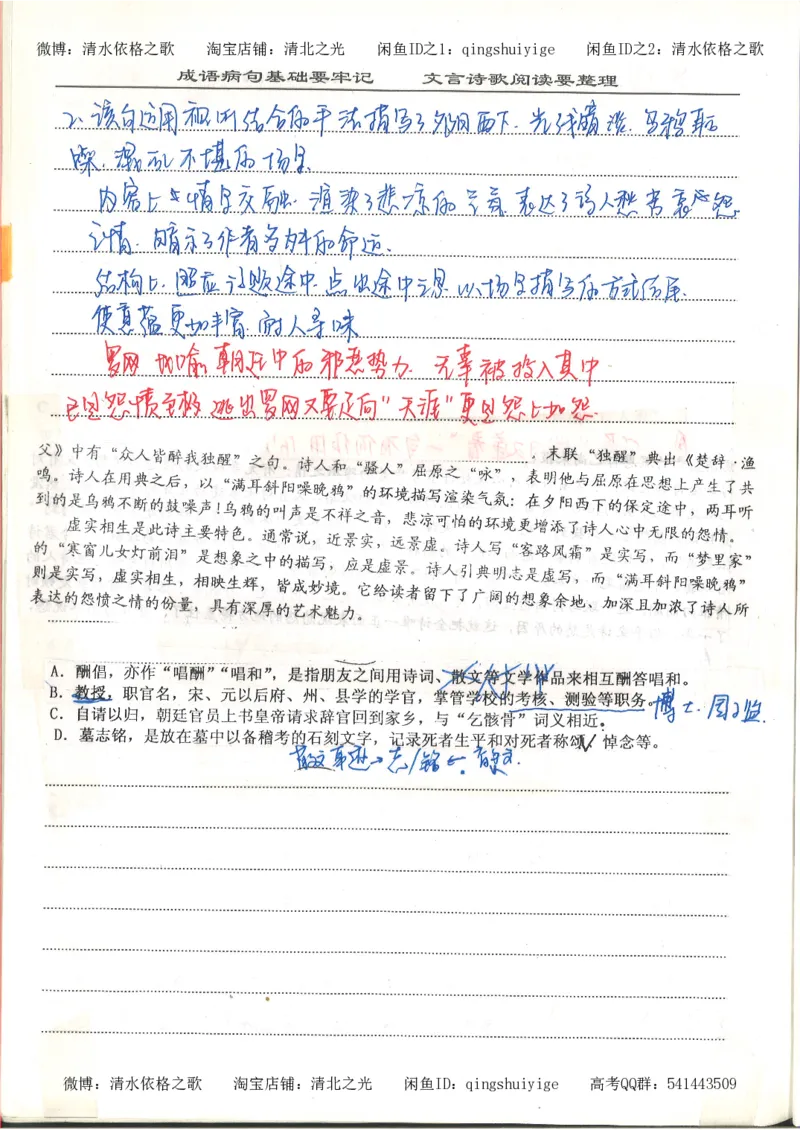 微博：清水依格之歌 淘宝店铺：清北之光 闲鱼ID之1：qingshuiyige 闲鱼ID之2：清水依格之歌
成语病句基础要牢记 文言诗歌阅读要整理
2、该句运用视听结合的手法描写了夕阳西下、光线暗淡、乌鸦聒
噪、混乱不堪的场景
内容上：情景交融、渲染了悲凉的气氛 表达了诗人愁苦哀怨
之情、暗示了作者多舛的命运、
结构上、照应诗题途中、点出途中之景 以场景描写的方式结尾、
使意蕴更加丰富、耐人寻味
罗网 比喻朝廷中的邪恶势力、无辜被投入其中
已是怨愤至极 逃出罗网又要走向“天涯”更是怨上加怨
末联“独醒”典出《楚辞·渔
父》中有“众人皆醉我独醒”之句。诗人和“骚人”屈原之“咏”，表明他与屈原在思想上产生了共
鸣。诗人在用典之后，以“满耳斜阳噪晚鸦”的环境描写渲染气氛：在夕阳西下的保定途中，两耳听
到的是乌鸦不断的鼓噪声！乌鸦的叫声是不祥之音，悲凉可怕的环境更增添了诗人心中无限的怨情。
虚实相生是此诗主要特色。通常说，近景实，远景虚。诗人写“客路风霜”是实写，而“梦里家”
的“寒窗儿女灯前泪”是想象之中的描写，应是虚景。诗人引典明志是虚写，而“满耳斜阳噪晚鸦”
则是实写，虚实相生，相映生辉，皆成妙境。它给读者留下了广阔的想象余地、加深且加浓了诗人所
表达的怨愤之情的份量，具有深厚的艺术魅力。
A．酬倡，亦作“唱酬”“唱和”，是指朋友之间用诗词、散文等文学作品来相互酬答唱和。
B．教授，职官名，宋、元以后府、州、县学的学官，掌管学校的考核、测验等职务。博士、国子监
C．自请以归，朝廷官员上书皇帝请求辞官回到家乡，与“乞骸骨”词义相近。
D．墓志铭，是放在墓中以备稽考的石刻文字，记录死者生平和对死者称颂、悼念等。
散文 事迹→志/铭←韵文.
微博：清水依格之歌 淘宝店铺：清北之光 闲鱼ID：qingshuiyige 高考QQ群：541443509